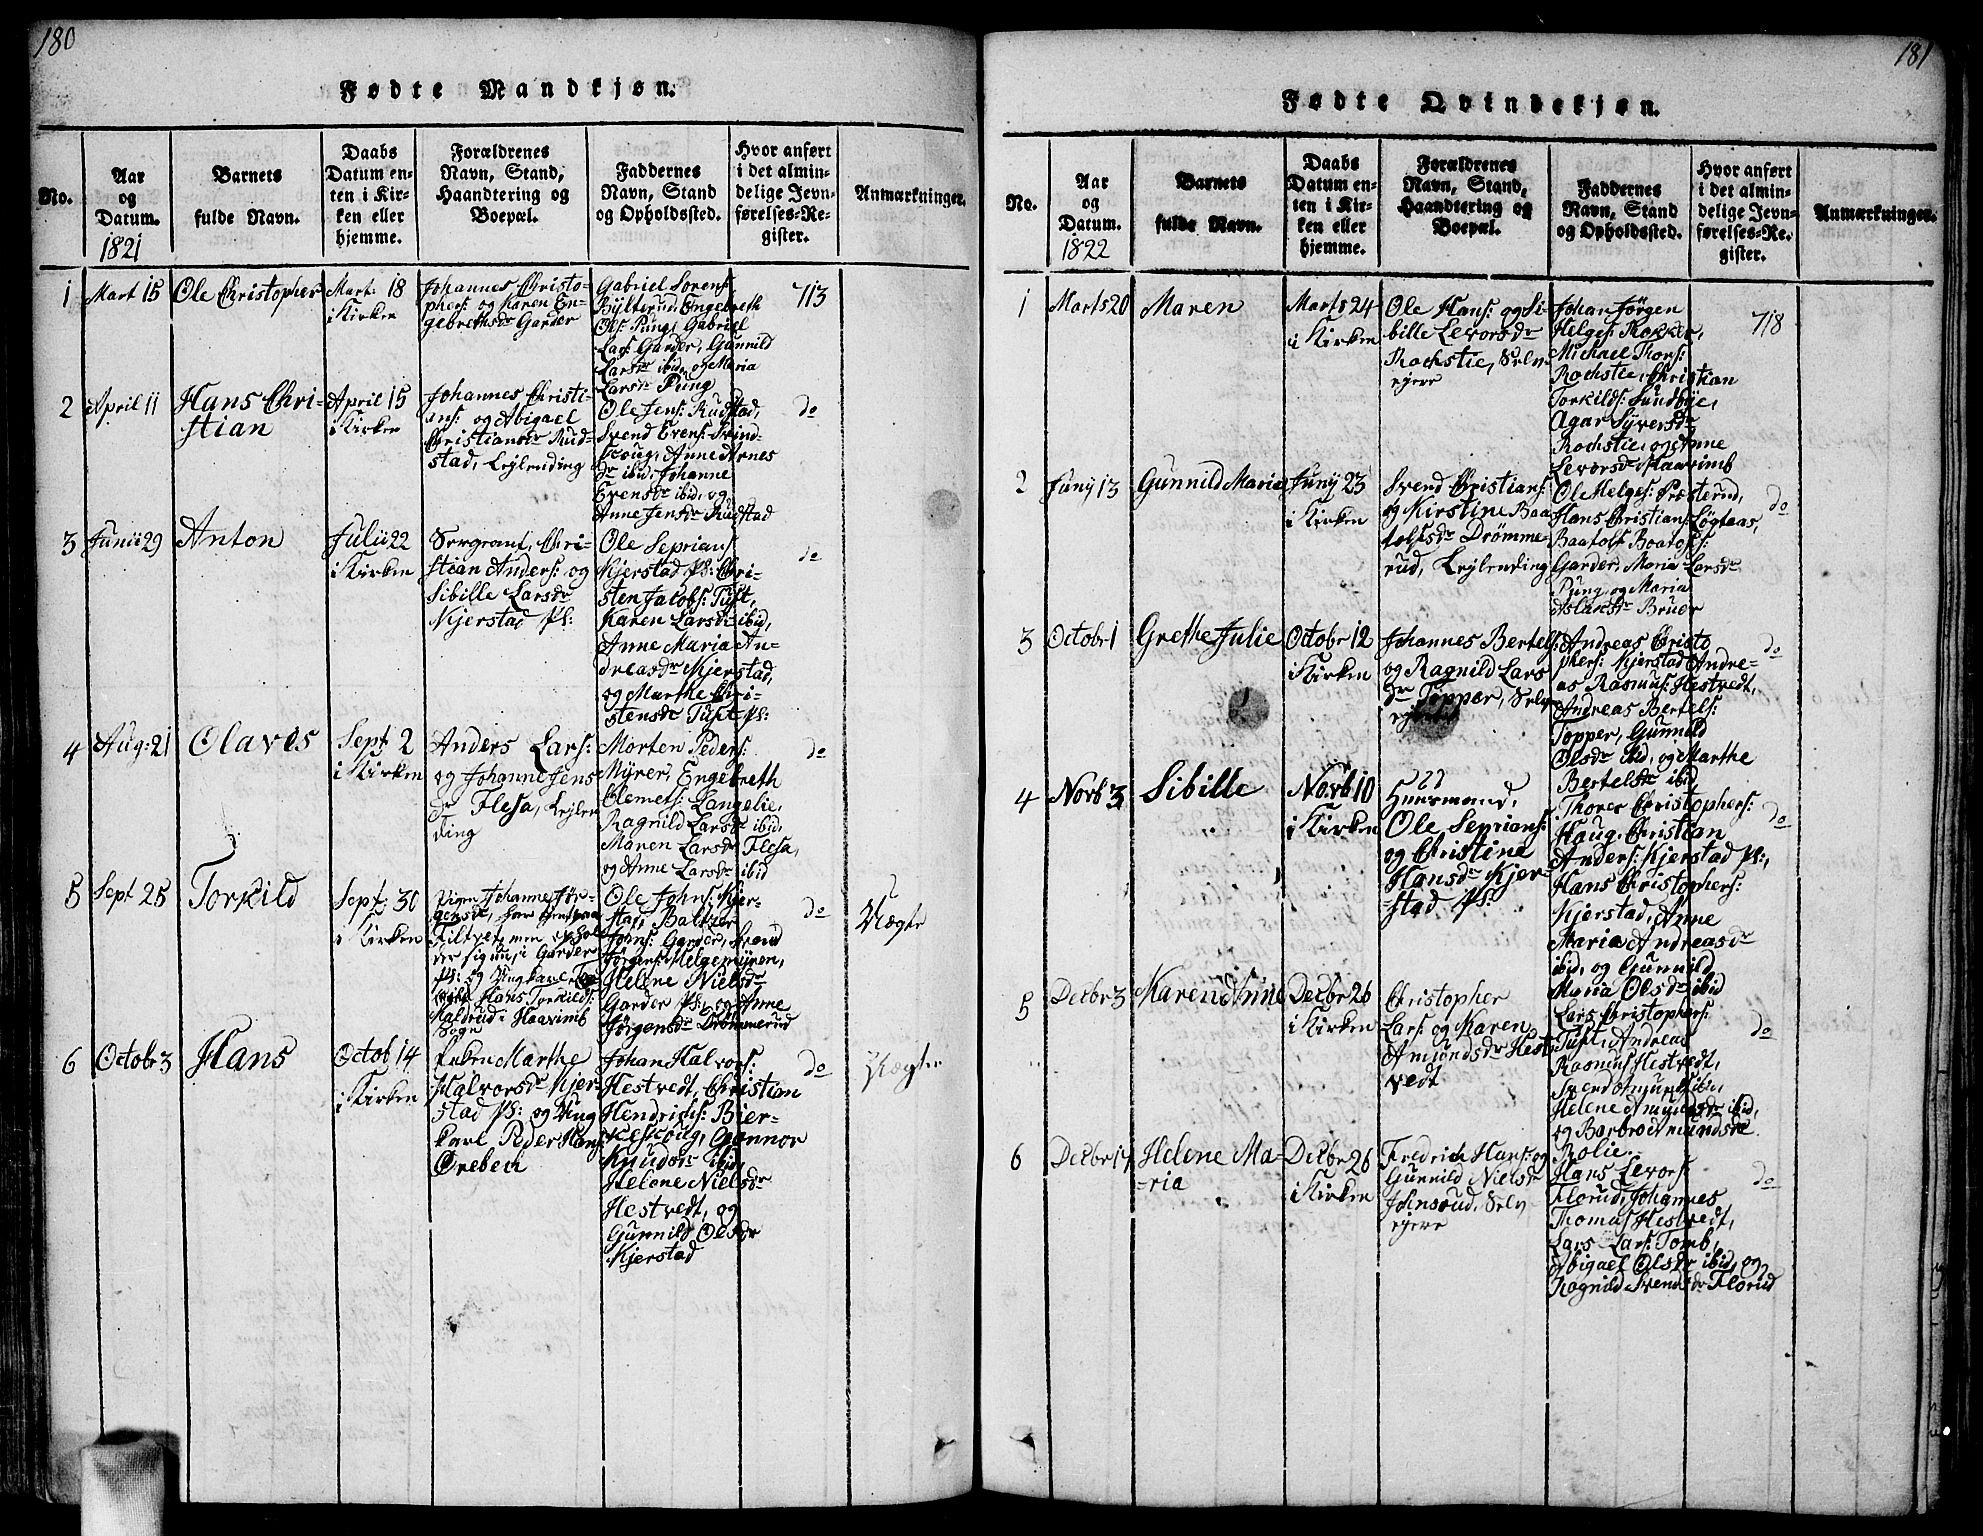 180
Fødte Mandkjøn.
No.
Aar
og
Datum.
1821
Barnets
fulde Navn.
Daabs
Datum en-
ten i Kir-
ken eller
hjemme.
Forældrenes
Navn, Stand,
Haandtering og
Boepæl.
Faddernes
Navn, Stand
og Opholdssted.
Hvor anført
i det almin-
delige Jevn-
førelses-Re-
gister.
Anmærkninger.
1
Mart 15
Ole Christopher
Mart: 18
i Kirken
Johannes Christo-
phers: og Karen En-
gebrethsdr Garder
Gabriel Sørens:
Bÿlterud, Engebreth
Ols: Pung, Gabriel
Lars: Garder, Gunnild
Larsdr ibid, og Maria
Larsdr Pung
713
2
April 11
Hans Chri-
stian
April 15
i Kirken
Johannes Christi-
ans: og Abigael
Christiansdr Rud-
stad, Lejlending
Ole Jens: Rudstad,
Svend Evens: Svind-
scoug, Anne Arnes
dr ibid, Johanne
Evensdr ibid, og
Anne Jensdr Rudstad
do
3
Junii 29
Anton
Julii 22
i Kirken
Sergeant, Chri-
stian Anders: og
Sibille Larsdr
Kjerstad Pl:
Ole Seprians:
Kjerstad Pl: Chri-
sten Jacobs: Tuft,
Karen Larsdr ibid,
Anne Maria An-
dreasdr Kjerstad,
og Marthe Chri-
stensdr Tuft Pl:
do
4
Aug: 21
Olaves
Sept: 2
i Kirken
Anders Lars:
og Johanne Jens
dr Flesa, Lejlen
ding
Morten Peders:
Myrer, Engebreth
Clemets: Langelie,
Ragnild Larsdr ibid,
Maren Larsdr Flesa,
og Anne Larsdr ibid
do
5
Sept 25
Torkild
Sept: 30
i Kirken
Pigen Johanne Jør-
gensdr,
der sig nu i Garder
Pl: og Ungkarl
Hans Torkilds:
Haldrud i Haavimb
Sogn
Ole Johns: Kjer-
stad, Baltzer
Johns: Garder, Svend
Jørgens: Melgemÿren,
Helene Nielsdr
Garder Pl:, og Anne
Jørgensdr Drømmerud
do
Uægte
6
Octobr 3
Hans
Octob 14
i Kirken
Enken Marthe
Halvorsdr Kjer-
stad Pl: og Ung
karl Peder Hans:
Ørebech
Johan Halvors:
Hestvedt, Christian
Hendrichs: Bjer-
keskoug, Gunnor
Knudsdr ibid,
Helene Nielsdr
Hestvedt, og
Gunnild Olsdr
Kjerstad
do
Uægte
181
Fødte Qvindekjøn.
No.
Aar
og
Datum.
1822
Barnets
fulde Navn.
Daabs
Datum en-
ten i Kir-
ken eller
hjemme.
Forældrenes
Navn, Stand,
Haandtering og
Boepæl.
Faddernes
Navn, Stand
og Opholdssted.
Hvor anført
i det almin-
delige Jevn-
førelses-Re-
gister.
Anmærkninger.
1
Marts 20
Maren
Marts 24
i Kirken
Ole Hans: og Si-
bille Levorsdr
Rochstie, Selv
ejere
Johan Jørgen
Helges: Rokker,
Michael Thors:
Rochstie, Christian
Torkilds: Sundbÿe,
Agar Sÿversdr
Rochstie, og Anne
Levorsdr Haavimb
718
2
Junÿ 13
Gunnild Maria
Junÿ 23
i Kirken
Svend Christians:
og Kirstine Baa
tolfsdr Drømme-
rud, Lejlending
Ole Helges: Præsterud,
Hans Christians: Løgtaas,
Baatolf Boatofs:
Garder, Maria Larsdr
Pung, og Maria
Aslaksdr Bruer
do
3
Octobr 1
Grethe Julie
Octobr 12
i Kirken
Johannes Bertels:
og Ragnild Lars
dr Topper, Selv
ejere
Andreas Christo
phers: Kjerstad, Andre-
as Rasmus: Hestvedt,
Andreas Bertels:
Topper, Gunnild
Olsdr ibid, og Marthe
Bertelsdr ibid
do
4
Novb 3
Sibille
Novb 10
i Kirken
Huusmand,
Ole Seprians:
og Christine
Hansdr Kjer-
stad Pl:
Thorer Christophers:
Haug, Christian
Anders: Kjerstad Pl:,
Hans Christophers:
Kjerstad, Anne
Maria Andreasdr
ibid, og Gunnild
Maria Olsdr ibid
do
5
Decbr 3
Karen Anne
Decbr 26
i Kirken
Christopher
Lars: og Karen
Amundsdr Hest-
vedt
Lars Christophers:
Tuft, Andreas
Rasmus: Hestvedt,
Svend Amunds: ibid,
Helene Amundsdr ibid,
og Barbroe Amundsdr
Rolie.
do
6
Decbr 14
Helene Ma-
ria
Decbr 26
i Kirken
Fredrich Hans: og
Gunnild Nielsdr
Johnsrud, Selv
ejere
Hans Levors:
Florud, Johannes
Thomas: Hestvedt,
Lars Lars: Tomb,
Abigael Olsdr ibid, og
Ragnild Svendsdr Florud
do